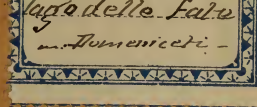 Lago delle Fate
Domeniceti -